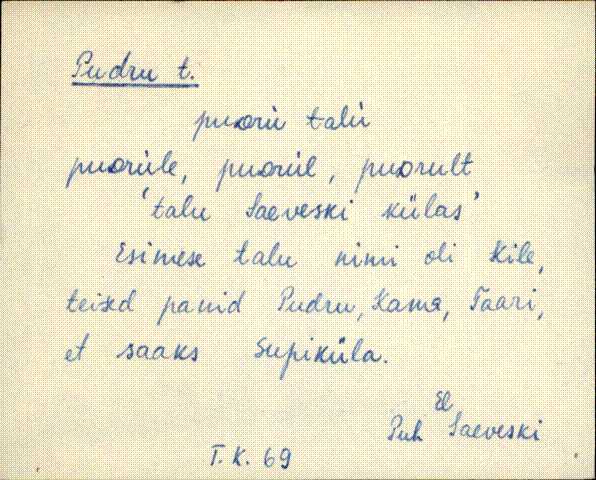 Pudru t.
puoru talu
puorule, puorul, puorult
'talu Saeveski külas'
Esimese talu nimi oli Kile,
teised panid Pudru, Kama, Taari,
et saaks Supiküla.
El
Puh Saeveski
T. K. 69